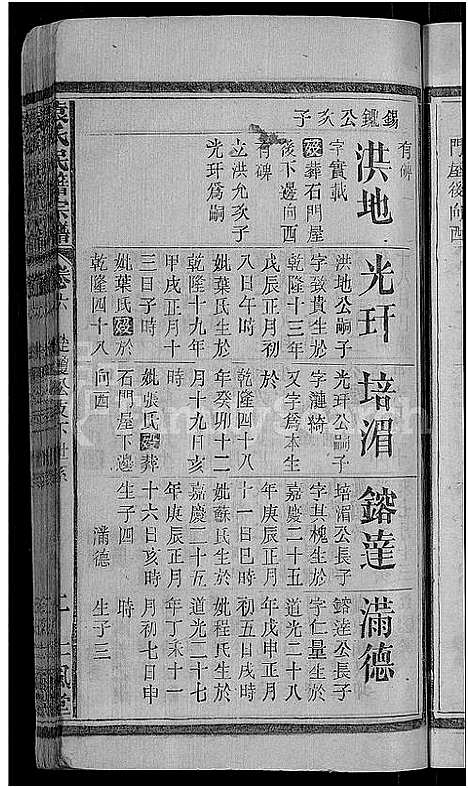 錫鑱公次子
洪地
有傳
字實載
歿葬石門屋
後下邊向西
有碑
立洪允次子
光玕爲嗣
光玕
洪地公嗣子
字致貴生於
乾隆十三年
戊辰正月初
八日午時
妣葉氏生於
乾隆十九年
甲戌正月十
三日子時
妣葉氏歿於
乾隆四十八
培湄
光玕公嗣子
字漣漪
又字爲本生
於
乾隆四十八
年癸卯十二
月十九日亥
時
妣張氏歿葬
石門屋下邊
向西
鎔達
培湄公長子
字其槐生於
嘉慶二十五
年庚辰正月
十一日巳時
妣蘇氏生於
嘉慶二十五
年庚辰正月
十六日亥時
生子四
滿德
滿德
鎔達公長子
字仁量生於
道光二十八
年戊申正月
初五日戌時
妣程氏生於
道光二十七
年丁未十一
月初七日申
時
生子三
袁氏宗譜
卷六
門屋後向西